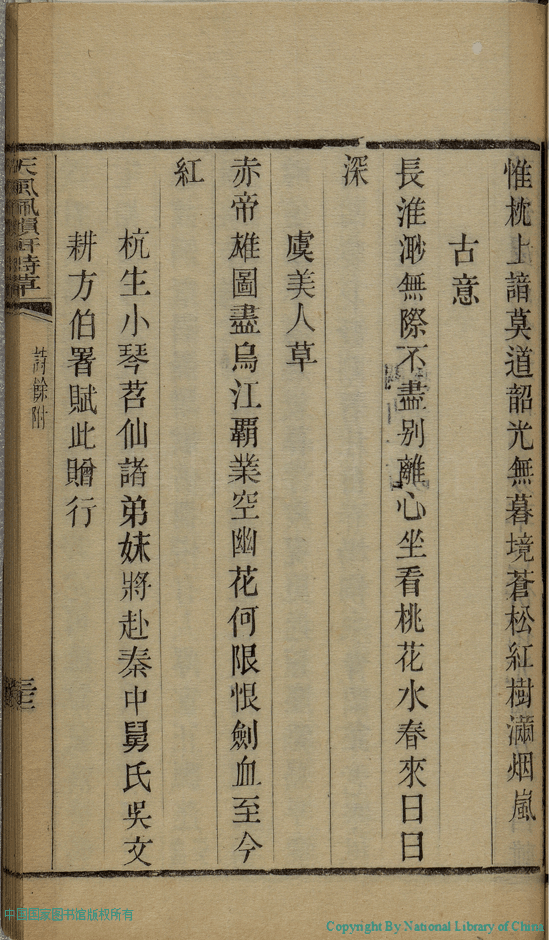 惟枕上諳莫道韶光無暮境蒼松紅樹滿烟嵐
古意
長淮渺無際不盡別離心坐看桃花水春來日日
深
虞美人草
赤帝雄圖盡烏江覇業空幽花何限恨劍血至今
紅
杭生小琴茗仙諸弟妹將赴秦中舅氏吳文
耕方伯署賦此贈行
天風佩韻軒詩草
詩餘附
中国国家图书馆版权所有
Copyright By National Library of China